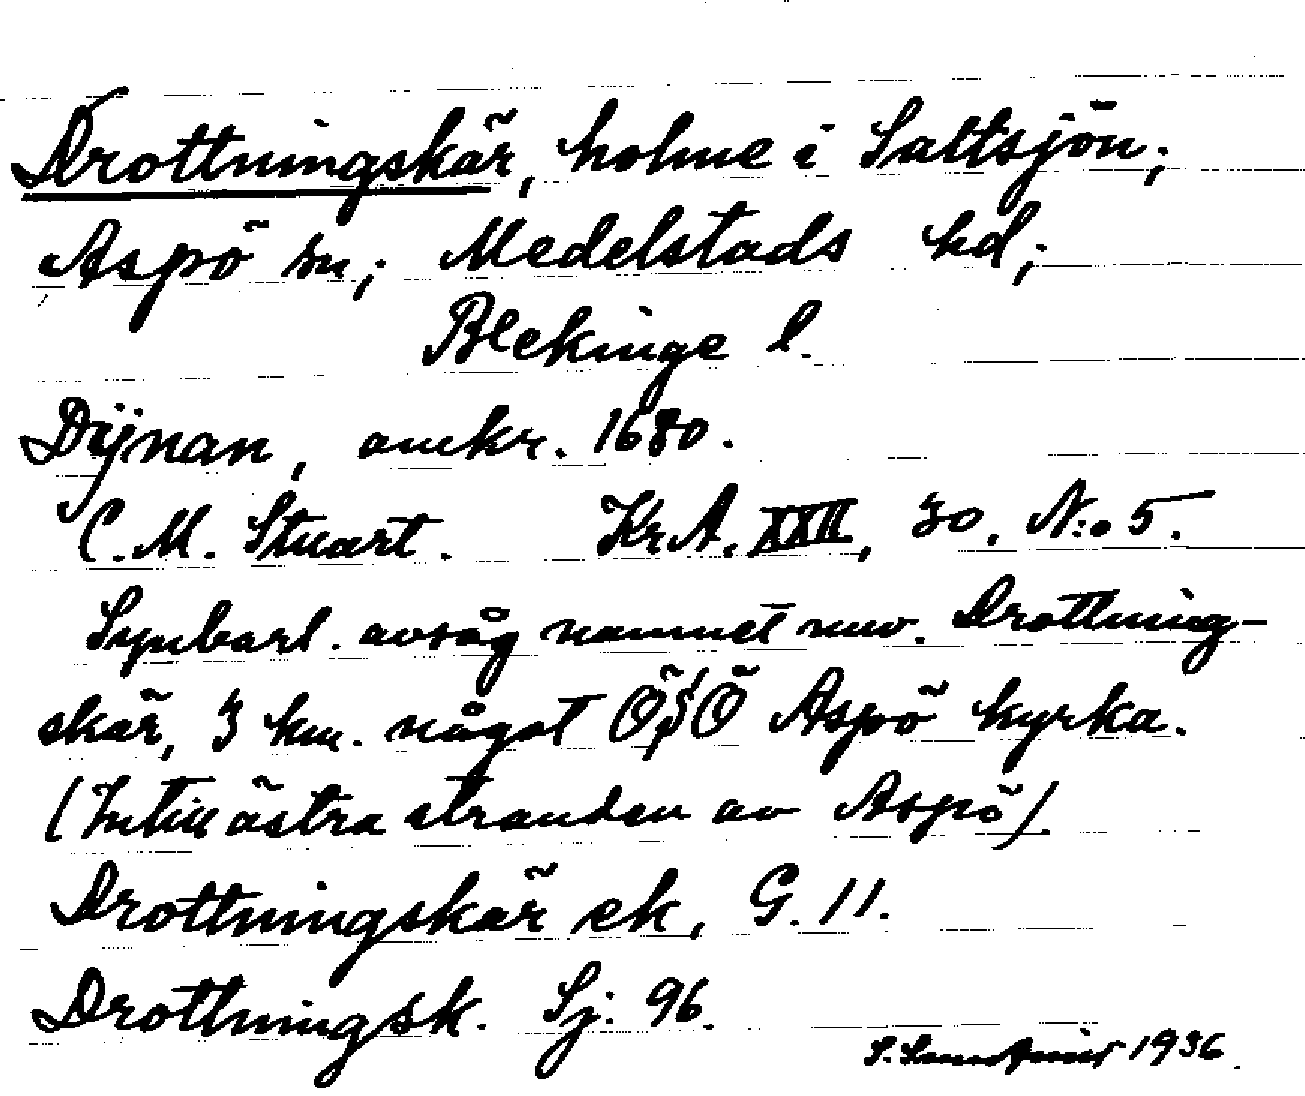 Drottningskär, holme i Saltsjön;
Aspö sn; Medelstads hd;
Blekinge l.
Dÿnan, omkr. 1680.
C.M. Stuart. Kr.A. XXII, 30. N:o 5.
Synbarl. avsåg namnet nuv. Drottning-
skär, 3 km. något ÖSÖ Aspö kyrka.
(Intill östra stranden av Aspö).
Drottningskär ek, G. 11.
Drottningsk. Sj: 96.
S. 1936.